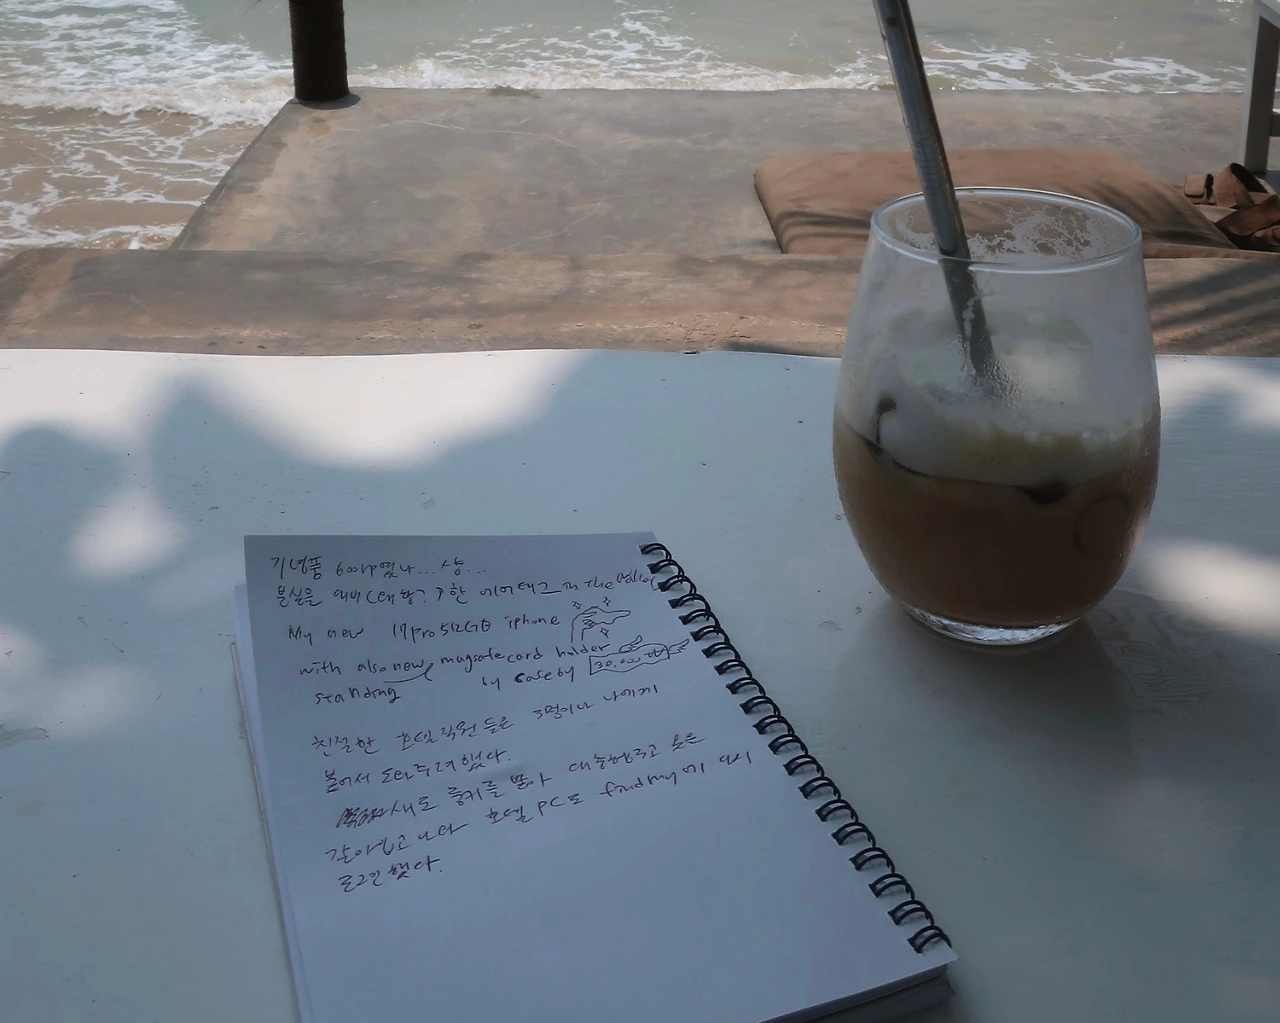 기념품 600rp였나... 상...
분실을 예비(대항?)한 에어태그 in the
My new 17pro512GB iphone
with also new magsafe card holder
standing by caseby 30.000₩
친절한 호텔직원들은 3명이나 나에게
붙어서 도와주려했다.
새로 룸키를 받아 대충헹구고 옷은
갈아입고 나와 호텔PC로 findmy에 다시
로그인했다.